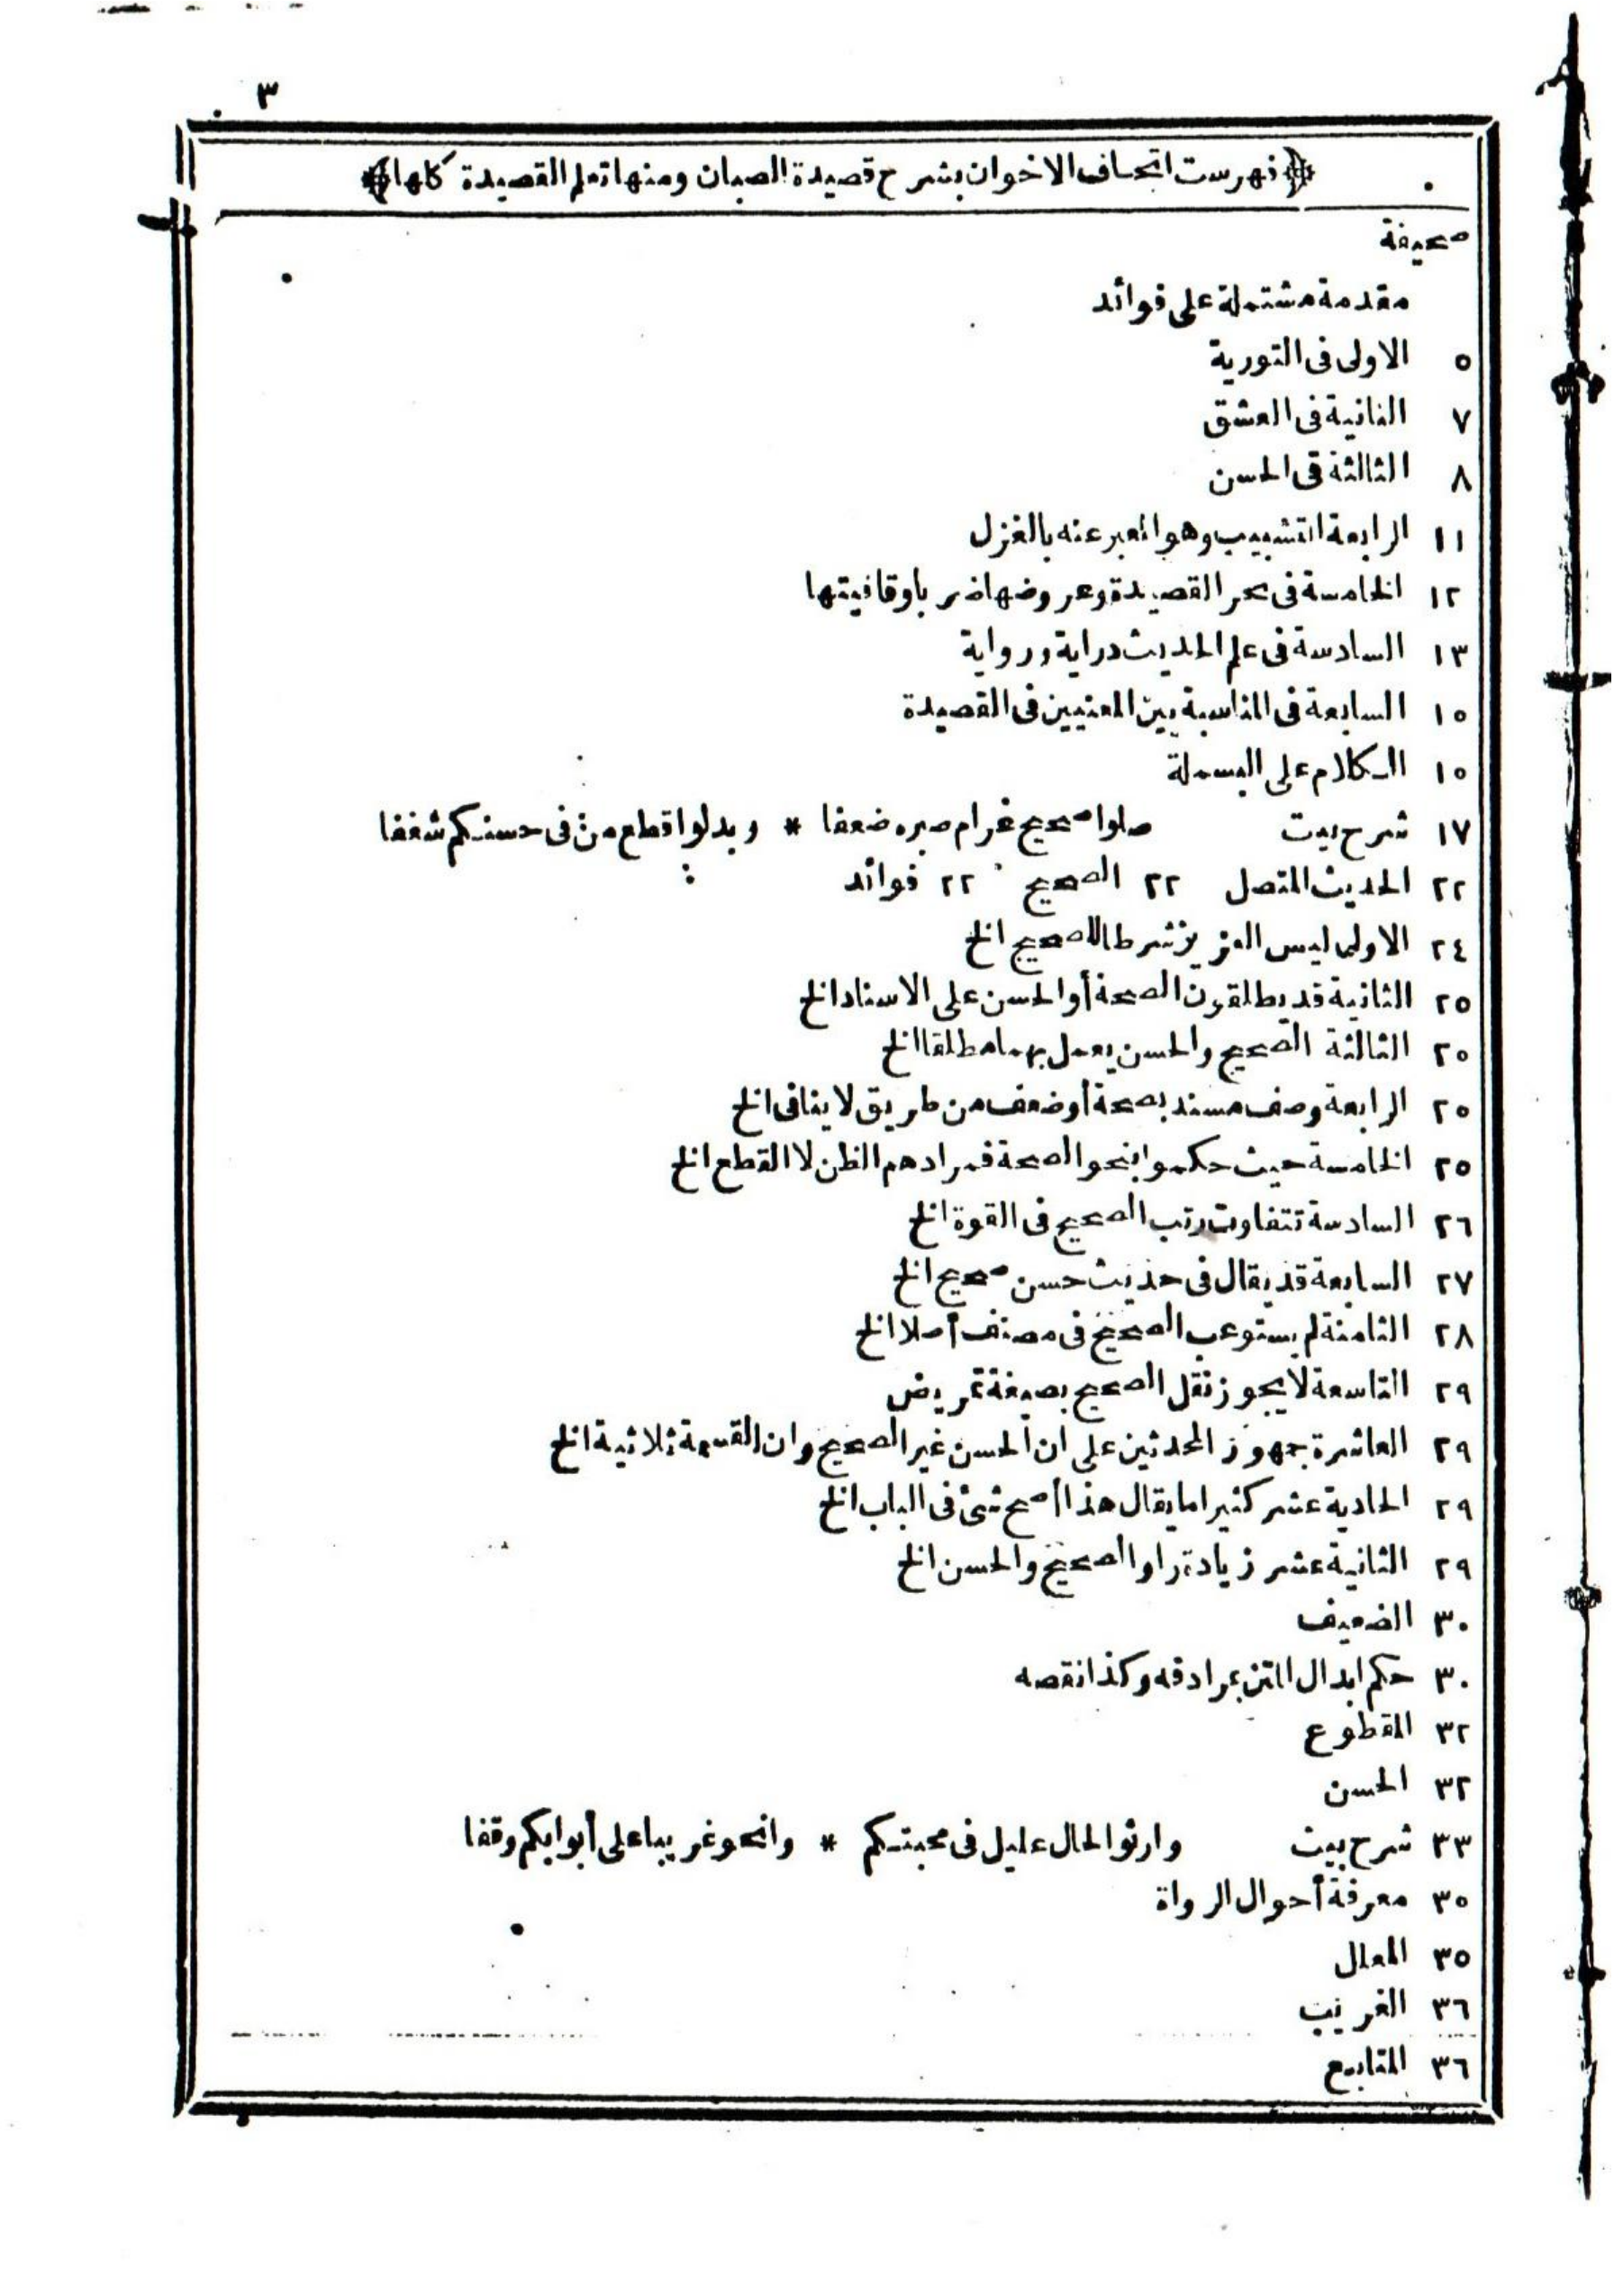 ٣
﴿فهرست اتحاف الاخوان بشرح قصيدة الصبان ومنها تعلم القصيدة كلها﴾
صحيفة
مقدمة مشتملة على فوائد
٥ الاولى فى التورية
٧ الثانية فى العشق
٨ الثالثة فى الحسن
١١ الرابعة التشبيب وهو المعبر عنه بالغزل
١٢ الخامسة فى بحر القصيدة وعروضها ضربا وقافيتها
١٣ السادسة فى علم الحديث دراية ورواية
١٥ السابعة فى المناسبة بين المعنيين فى القصيدة
١٥ الكلام على البسملة
١٧ شرح بيت صلوا صحيح غرام صبره ضعفا * وبدلوا قطع من فى حسنكم شغفا
٢٢ الحديث المتصل ٢٢ الصحيح ٢٢ فوائد
٢٤ الاولى ليس العزيز شرطا للصحيح الخ
٢٥ الثانية قد يطلقون الصحة أو الحسن على الاسناد الخ
٢٥ الثالثة الصحيح والحسن يعمل بهما مطلقا الخ
٢٥ الرابعة وصف مسند بصحة أو ضعف من طريق لا ينافى الخ
٢٥ الخامسة حيث حكموا بنحو الصحة فمرادهم الظن لا القطع الخ
٢٦ السادسة تتفاوت رتب الصحيح فى القوة الخ
٢٧ السابعة قد يقال فى حديث حسن صحيح الخ
٢٨ الثامنة لم يستوعب الصحيح فى مصنف أصلا الخ
٢٩ التاسعة لا يجوز نقل الصحيح بصيغة تمريض
٢٩ العاشرة جمهور المحدثين على ان الحسن غير الصحيح وان القسمة ثلاثية الخ
٢٩ الحادية عشر كثيرا ما يقال هذا أصح شئ فى الباب الخ
٢٩ الثانية عشر زيادة راو الصحيح والحسن الخ
٣٠ الضعيف
٣٠ حكم ابدال المتن بمرادفه وكذا نقصه
٣٢ المقطوع
٣٢ الحسن
٣٣ شرح بيت وارثوا لحال عليل فى محبتكم * وانحو غريبا على أبوابكم وقفا
٣٥ معرفة أحوال الرواة
٣٥ المعلل
٣٦ الغريب
٣٦ المتابع